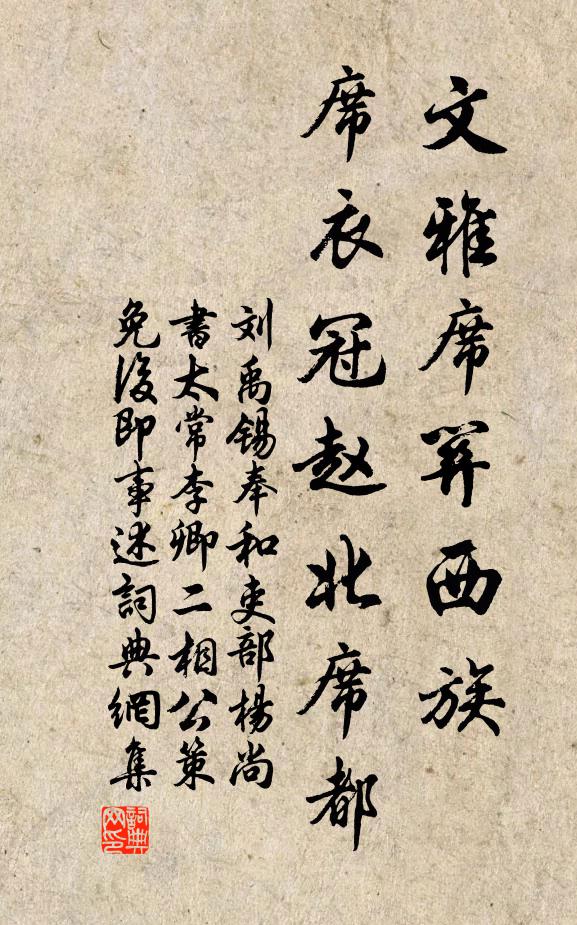 文雅席羿西族
席衣冠赵北席都
刘禹锡奉和吏部杨尚
書太常李卿二相公策
免後即事述詞典網集
詞典网印